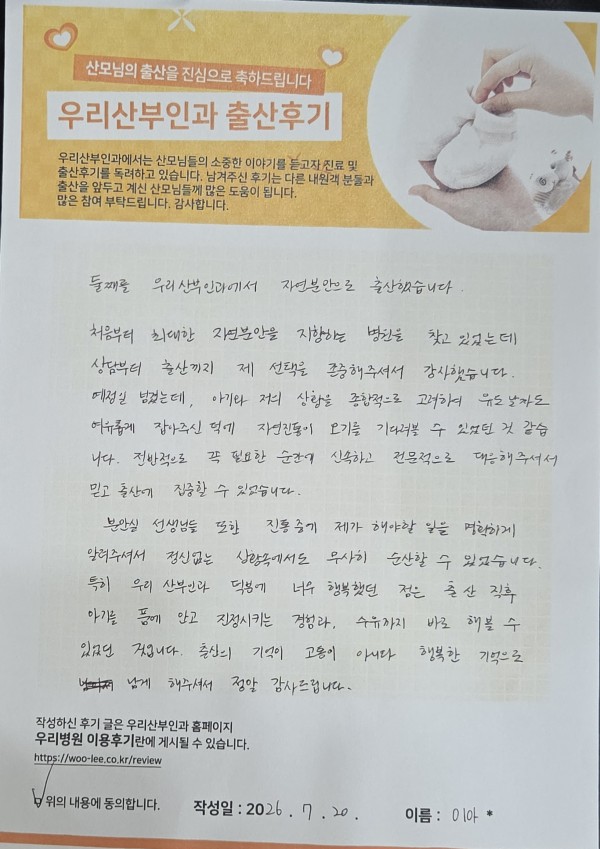 산모님의 출산을 진심으로 축하드립니다
우리산부인과 출산후기
우리산부인과에서는 산모님들의 소중한 이야기를 듣고자 진료 및
출산후기를 독려하고 있습니다. 남겨주신 후기는 다른 내원객 분들과
출산을 앞두고 계신 산모님들께 많은 도움이 됩니다.
많은 참여 부탁드립니다. 감사합니다.
둘째를 우리산부인과에서 자연분만으로 출산했습니다.
처음부터 최대한 자연분만을 지향하는 병원을 찾고 있었는데
상담부터 출산까지 제 선택을 존중해주셔서 감사했습니다.
예정일 넘겼는데, 아기와 저의 상황을 종합적으로 고려하여 유도 날짜도
여유롭게 잡아주신 덕에 자연진통이 오기를 기다려볼 수 있었던 것 같습
니다. 전반적으로 꼭 필요한 순간에 신속하고 전문적으로 대응해주셔서
믿고 출산에 집중할 수 있었습니다.
분만실 선생님들 또한 진통중에 제가 해야할 일을 명확하게
알려주셔서 정신없는 상황속에서도 무사히 순산할 수 있었습니다.
특히 우리 산부인과 덕분에 너무 행복했던 점은 출산 직후
아기를 품에 안고 진정시키는 경험과, 수유까지 바로 해볼 수
있었던 것입니다. 출산의 기억이 고통이 아니라 행복한 기억으로
남게 해주셔서 정말 감사드립니다.
작성하신 후기 글은 우리산부인과 홈페이지
우리병원 이용후기란에 게시될 수 있습니다.
https://woo-lee.co.kr/review
위의 내용에 동의합니다. 작성일 : 2026. 7. 20. 이름 : 이아 *